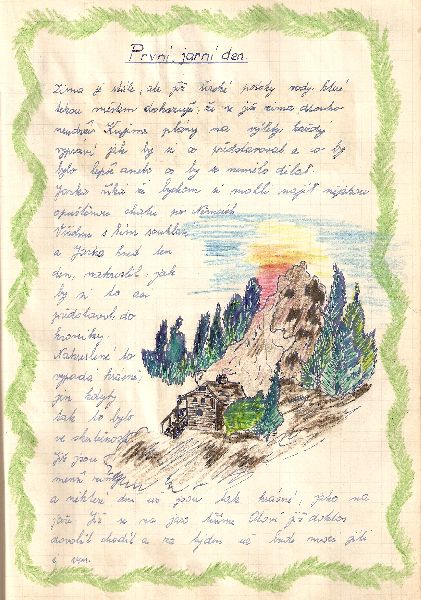 První jarní den.
Zima je stále, ale již široké potoky vody, které
tekou městem dokazují, že se již zima dlouho
neudrží. Kujeme plány na výlety každý
vypráví jak by si co představoval a co by
bylo lepší anebo co by se nemělo dělat.
Jarka říká že bychom si mohli najít nějakou
opuštěnou chatu po Němcích
Všichni s ním souhlasí
a Jarka hned ten
den, nakreslil jak
by si to asi
představoval do
kroniky.
Nakreslené to
vypadá krásně,
jen kdyby
tak to bylo
ve skutečnosti
Již jsou
menší
a některé dni už jsou tak krásné, jako na
jaře. Již se na jaro těšíme. Otovi již doktor
dovolil chodit a za týden už bude moci jíti
s